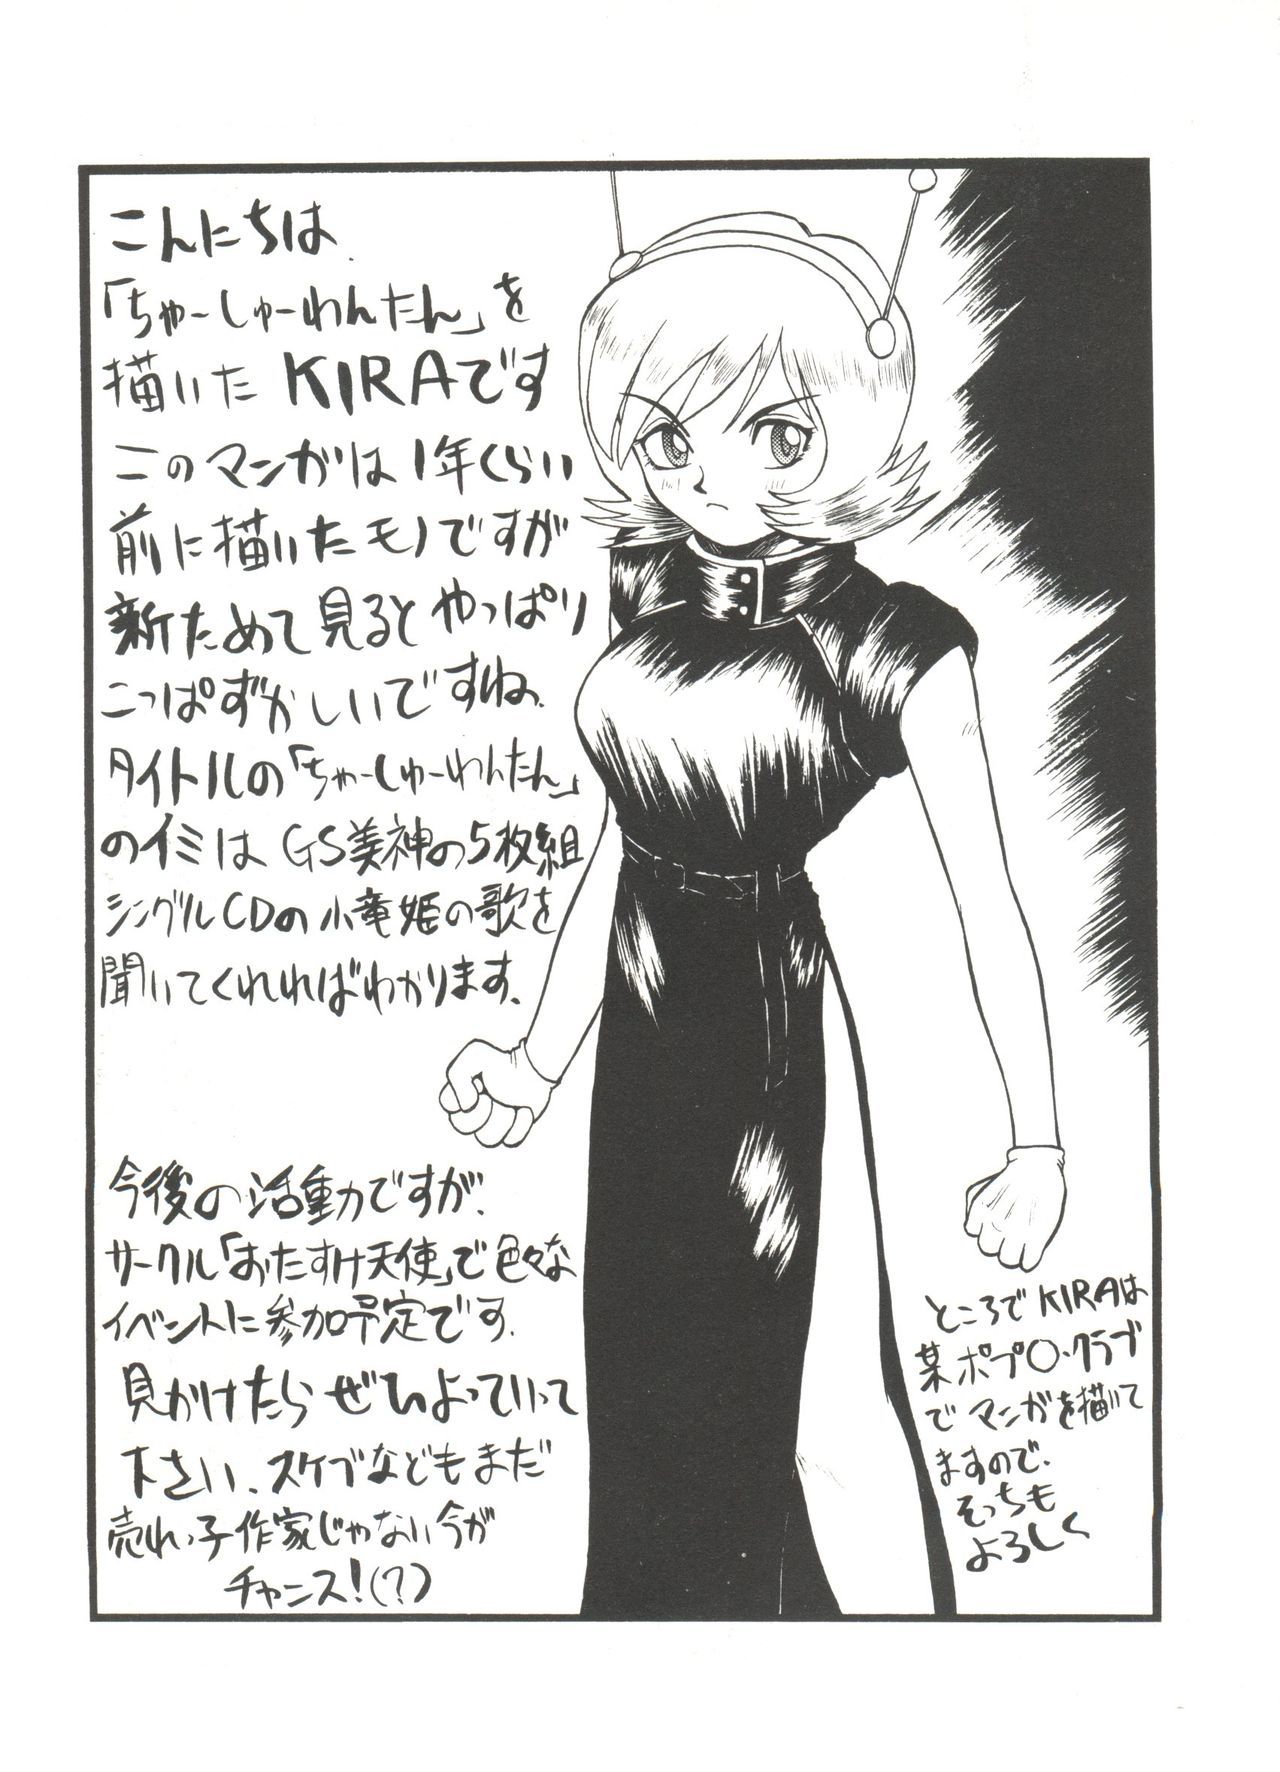 こんにちは、
「ちゃーしゅーわんたん」を
描いた KIRAです
このマンガは1年くらい
前に描いたモノですが
新ためて見るとやっぱり
こっぱずかしいですね。
タイトルの「ちゃーしゅーわんたん」
のイミは GS美神の5枚組
シングルCDの小竜姫の歌を
聞いてくれればわかります。
今後の活動ですが、
サークル「おたすけ天使」で色々な
イベントに参加予定です。
見かけたらぜひよっていって
下さい、スケブなどもまだ
売れっ子作家じゃない今が
チャンス!(?)
ところでKIRAは
某ポプ〇・クラブ
でマンガを描いて
ますので、
そっちも
よろしく